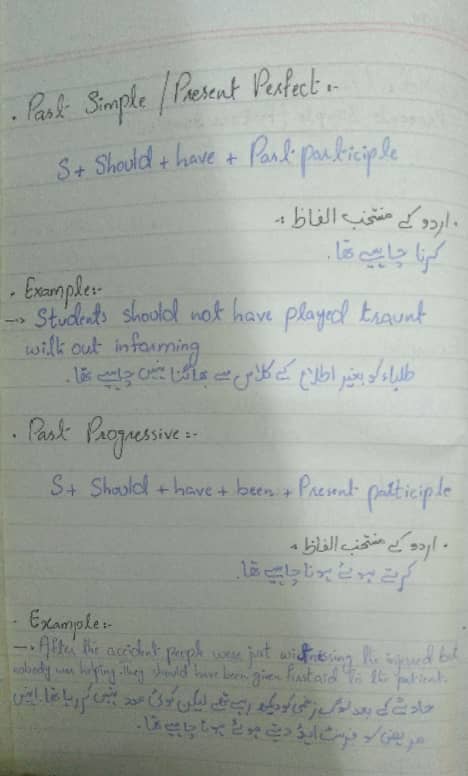 . Past Simple / Present Perfect :-
S + Should + have + Past participle
. اردو کے منتخب الفاظ :
کرنا چاہیے تھا.
. Example:-
→ Students should not have played traunt
with out informing
طلباء کو بغیر اطلاع کے کلاس سے بھاگنا نہیں چاہیے تھا.
. Past Progressive :-
S + Should + have + been + Present participle
. اردو کے منتخب الفاظ :
کرتے ہوئے ہونا چاہیے تھا.
. Example:-
→ After the accident people were just witnessing the injured but
nobody was helping. they should have been given first aid to the patient.
حادثے کے بعد لوگ زخمی کو دیکھ رہے تھے لیکن کوئی مدد نہیں کر رہا تھا. انہیں
مریض کو فرسٹ ایڈ دیتے ہوئے ہونا چاہیے تھا.